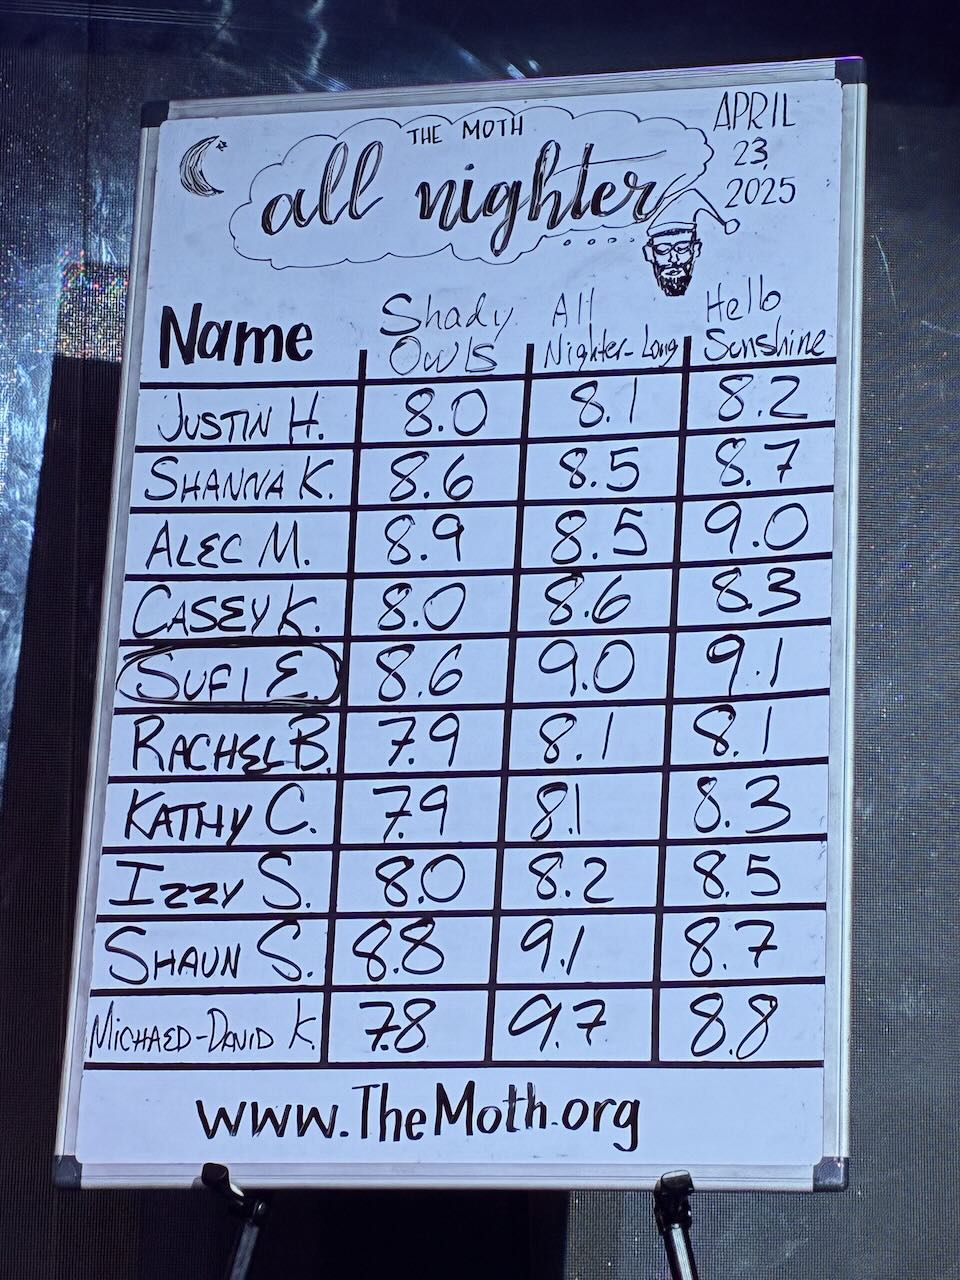 THE MOTH
all nighter
APRIL
23,
2025
Name Shady Owls All Nighter-Long Hello Sunshine
JUSTIN H. 8.0 8.1 8.2
SHANNA K. 8.6 8.5 8.7
ALEC M. 8.9 8.5 9.0
CASEY K. 8.0 8.6 8.3
SUFI E. 8.6 9.0 9.1
RACHEL B. 7.9 8.1 8.1
KATHY C. 7.9 8.1 8.3
IZZY S. 8.0 8.2 8.5
SHAUN S. 8.8 9.1 8.7
MICHAED-DAVID K. 7.8 9.7 8.8
www.TheMoth.org